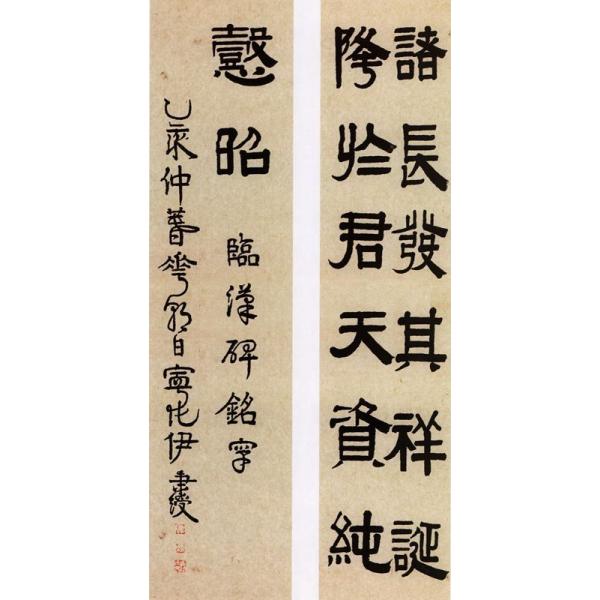 諸長發其祥誕
降於君天資純
懿昭
臨漢碑銘字
乙亥仲春華朝日寧化伊秉綬